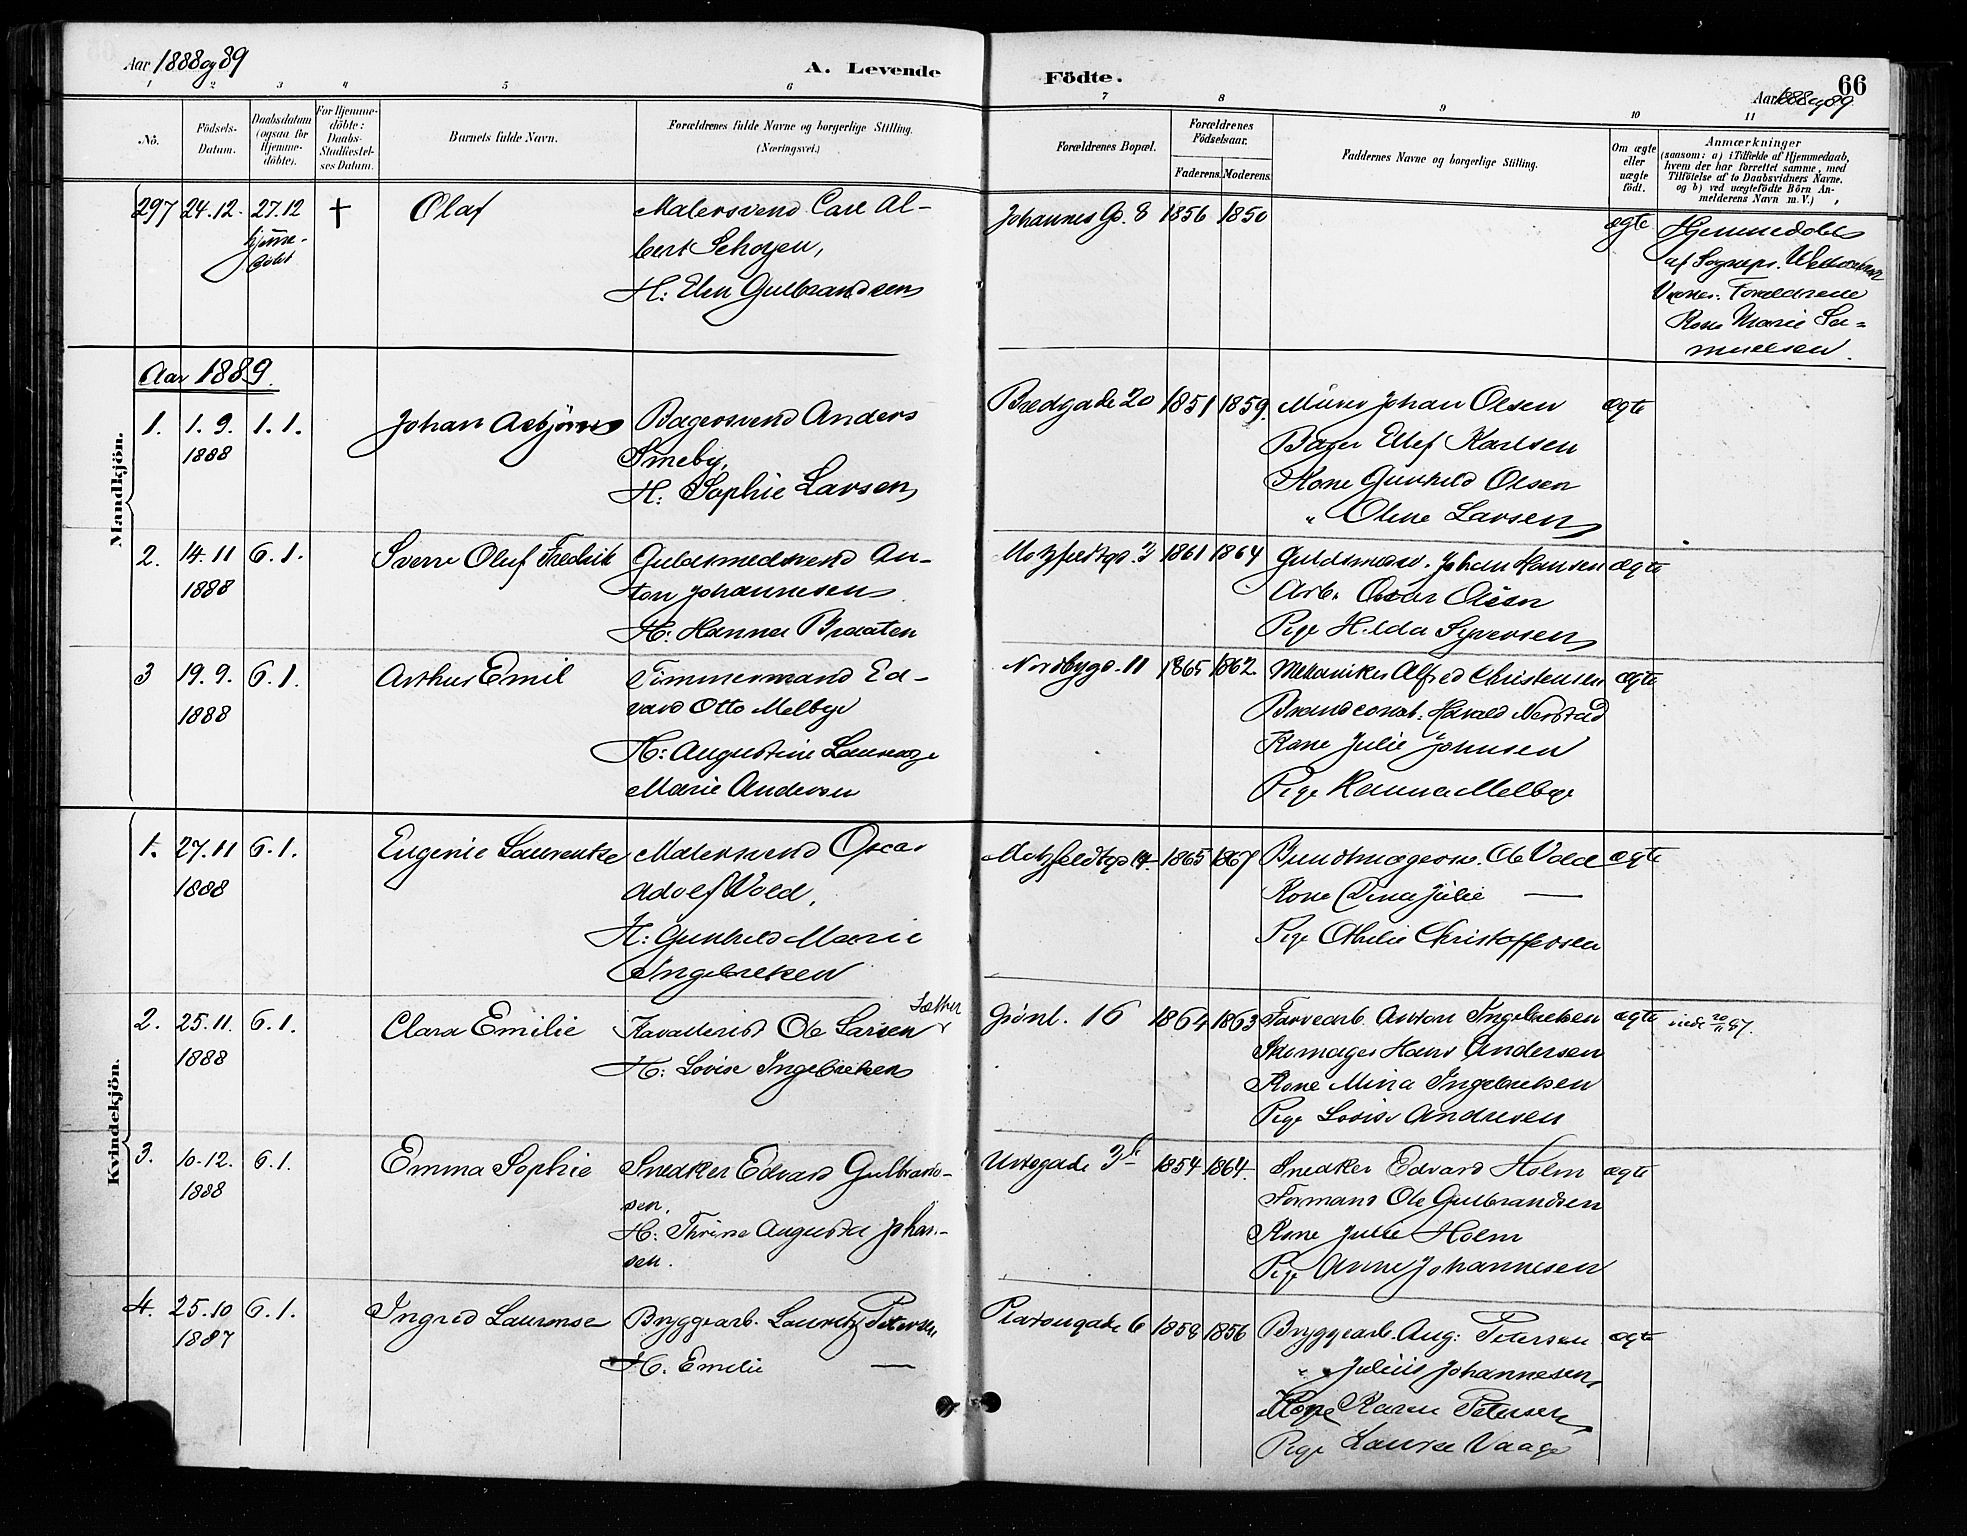 Aar 1888 og 89
A. Levende
Födte.
66
Aar 1888 og 89
1 2 3 4 5 6 7 8 9 10 11
No.
Födsels-
Datum.
Daabsdatum
(ogsaa for
Hjemme-
döbte).
For Hjemme-
döbte:
Daabs-
Stadfæstel-
ses Datum.
Barnets fulde Navn.
Forældrenes fulde Navne og borgerlige Stilling.
(Næringsvei.)
Forældrenes Bopæl.
Forældrenes
Födselsaar.
Faderens. Moderens.
Faddernes Navne og borgerlige Stilling.
Om ægte
eller
uægte
födt.
Anmærkninger
(saasom: a) i Tilfælde af Hjemmedaab,
hvem der har forrettet samme, med
Tilföielse af to Daabsvidners Navne.
og b) ved uægtefödte Börn An-
melderens Navn m. V.)
297 24.12. 27.12 † Olaf
hjemme-
döbt
Malersvend Carl Al-
bert Schoyen,
H: Elen Gulbrandsen
Johannes Gd. 8 1856 1850
ægte
Hjemmedøbt
af Sognepr.
Forældrene
Kone Marie Sa-
muelsen.
Aar 1889.
Mandkjön.
1. 1.9. 1.1. Johan Asbjørn
1888
Bagersvend Anders
Smeby,
H: Sophie Larsen
Bredgade 20 1851 1859.
Murer Johan Olsen
Bager Ellef Karlsen
Kone Gunhild Olsen
" Oline Larsen
ægte
2. 14.11 6.1. Sverre Oluf Fredrik
1888
Guldsmedsvend An-
ton Johannesen
H: Hanna Braaten
Motzfeldtgd. 3 1861 1864
Guldsmedsv. Johan Hansen
Arb. Oscar Olsen
Pige Hilda Syversen
ægte
3 19.9. 6.1. Arthur Emil
1888
Timmermand Ed-
vard Otto Melbye
H: Augustine Laurenze
Marie Andersen
Nordbygd. 11 1865 1862.
Mekaniker Alfred Christensen
Brandconst. Harald Nerstad
Kone Julie Johnsen
Pige Hanna Melbye
ægte
Kvindekjön.
1. 27.11 6.1. Eugenie Laurentze
1888
Malersvend Oscar
Adolf Vold,
H: Gunhild Marie
Ingebretsen
Motzfeldtgd 1865 1867
Bundtmagersv. Ole Vold
Kone Dina Julie —
Pige Othilie Christoffersen
ægte
2. 25.11. 6.1. Clara Emilie
1888
Kavallerist Ole Larsen Sæther
H: Lovise Ingebretsen
Grønl. 16 1864 1863
Farvearb. Anton Ingebretsen
Skomager Hans Andersen
Kone Mina Ingebretsen
Pige Lovise Andresen
ægte
viede 20/11 87.
3. 10.12. 6.1. Emma Sophie
1888
Snedker Edvard Gulbrand-
sen.
H: Thrine Augusta Johan-
sen.
Urtegade 3b 1854 1864.
Snedker Edvard Holm
Formand Ole Gulbrandsen
Kone Julie Holm
Pige Anne Johannesen
ægte
4. 25.10 6.1. Ingrid Laurense
1887
Bryggearb. Lauritz Petersen
H: Emilie —
Platougade 6 1858 1856
Bryggearb. Aug: Petersen
" Julius Johannesen
Kone Karen Petersen
Pige Laura Vaage
ægte